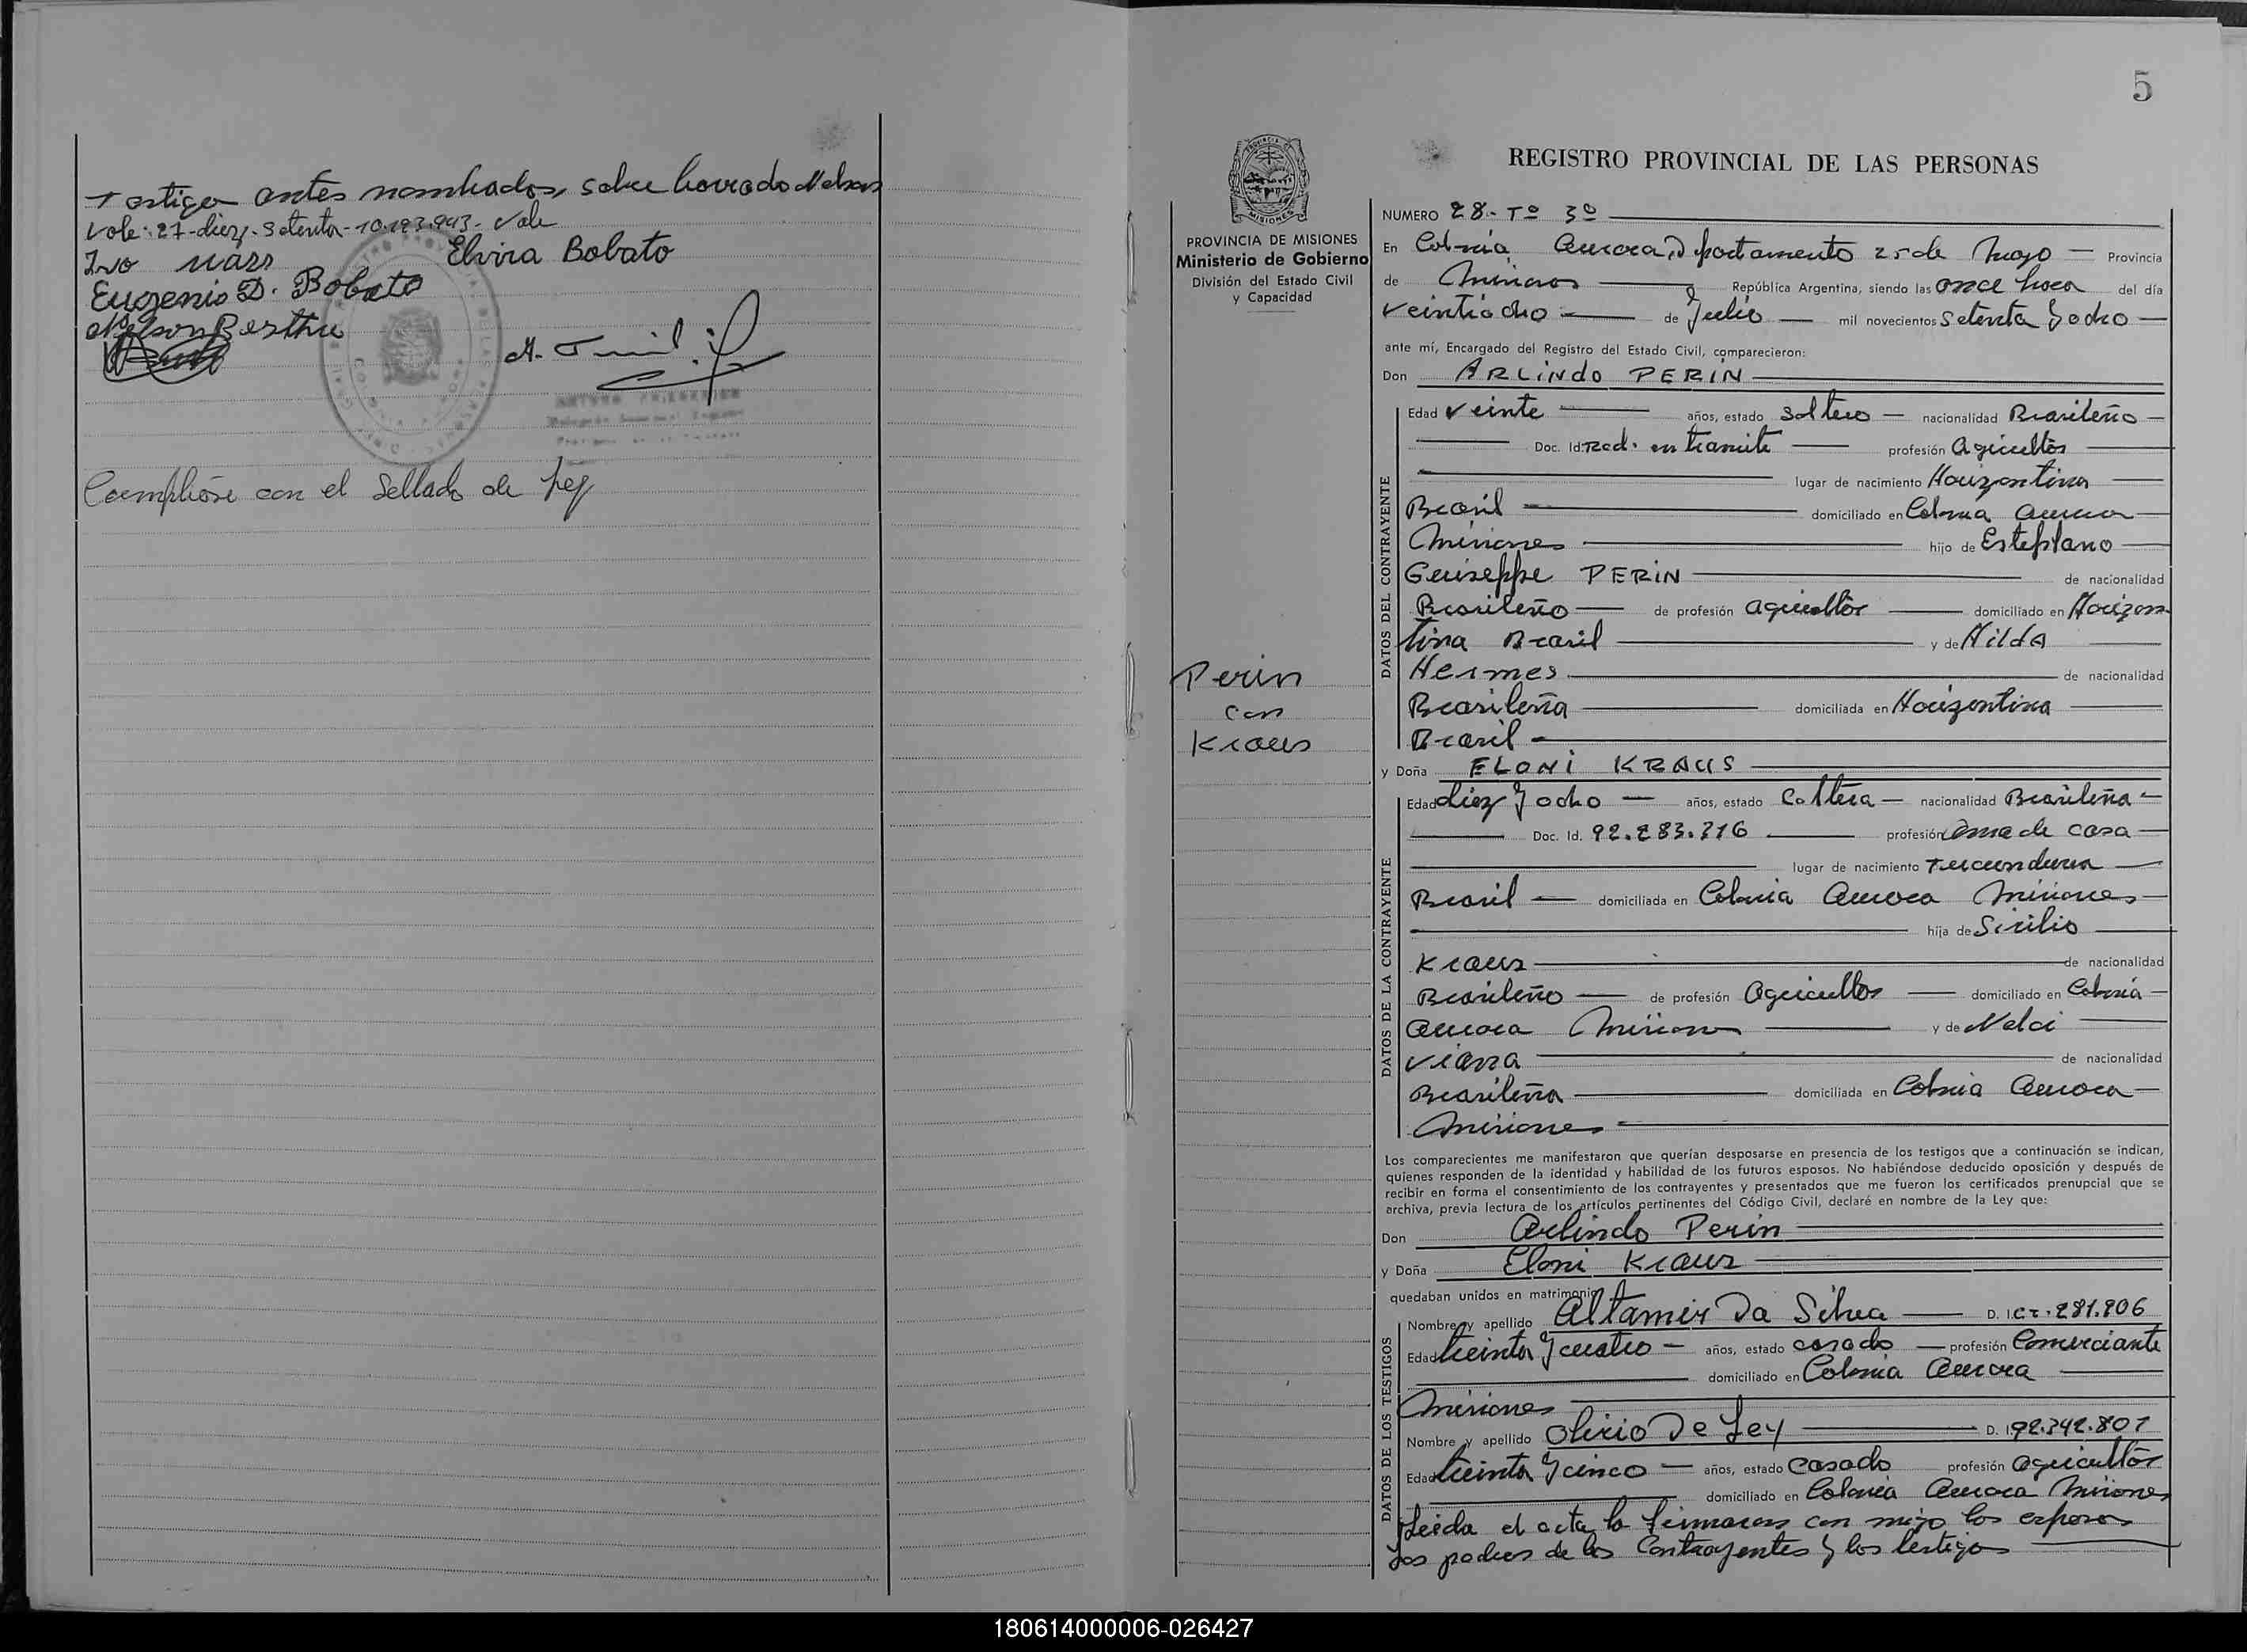 Testigos antes nombrados, sobre borrado Nelson
Vale: 27-diez-setenta-10.193.943- Vale
Ivo Mass
Elvira Bobato
Eugenio D. Bobato
Nelson Berthu
Cumplióse con el sellado de ley
5
PROVINCIA DE MISIONES
Ministerio de Gobierno
División del Estado Civil
y Capacidad
Perin
con
Kraus
REGISTRO PROVINCIAL DE LAS PERSONAS
NUMERO 28.- Tº 3º
En Colonia Aurora, Departamento 25 de Mayo Provincia
de Misiones República Argentina, siendo las once hora del día
veintiocho de Julio mil novecientos setenta y ocho
ante mí, Encargado del Registro del Estado Civil, comparecieron:
Don ARLINDO PERIN
DATOS DEL CONTRAYENTE
Edad veinte años, estado soltero nacionalidad Brasileño
Doc. Id. Rad. en tramite profesión Agricultor
lugar de nacimiento Horizontina
Brasil domiciliado en Colonia Aurora
Misiones hijo de Estefano
Geuiseppe PERIN de nacionalidad
Brasileño de profesión agricultor domiciliado en Horizon
tina Brasil y de Hilda
Hermes de nacionalidad
Brasileña domiciliada en Horizontina
Brasil
y Doña ELONI KRAUS
DATOS DE LA CONTRAYENTE
Edad diez y ocho años, estado Soltera nacionalidad Brasileña
Doc. Id. 92.283.316 profesión ama de casa
lugar de nacimiento Tucunduva
Brasil domiciliada en Colonia Aurora Misiones
hija de Sirilio
Kraus de nacionalidad
Brasileño de profesión Agricultor domiciliado en Colonia
Aurora Misiones y de Nelci
Viana de nacionalidad
Brasileña domiciliada en Colonia Aurora
Misiones
Los comparecientes me manifestaron que querían desposarse en presencia de los testigos que a continuación se indican,
quienes responden de la identidad y habilidad de los futuros esposos. No habiéndose deducido oposición y después de
recibir en forma el consentimiento de los contrayentes y presentados que me fueron los certificados prenupcial que se
archiva, previa lectura de los artículos pertinentes del Código Civil, declaré en nombre de la Ley que:
Don Arlindo Perin
y Doña Eloni Kraus
quedaban unidos en matrimonio
DATOS DE LOS TESTIGOS
Nombre y apellido Altamir Da Silva D. I. C.I. 281.806
Edad treinta y cuatro años, estado casado profesión Comerciante
domiciliado en Colonia Aurora
Misiones
Nombre y apellido Olirio De Ley D. I. 92.342.807
Edad treinta y cinco años, estado Casado profesión agricultor
domiciliado en Colonia Aurora Misiones
Leida el acta la firmaron con migo los esposos
los padres de los Contrayentes y los testigos
180614000006-026427